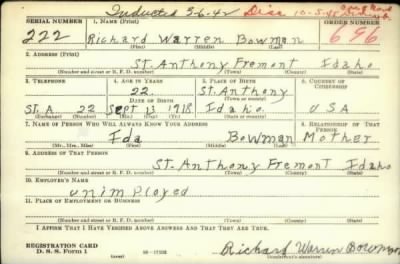 Inducted 3-6-42 Disc 10-5-45
SERIAL NUMBER 1. NAME (Print) ORDER NUMBER
222 Richard Warren Bowman 696
(First) (Middle) (Last)
2. ADDRESS (Print)
St. Anthony Fremont Idaho
(Number and street or R. F. D. number) (Town) (County) (State)
3. TELEPHONE 4. AGE IN YEARS 5. PLACE OF BIRTH 6. COUNTRY OF CITIZENSHIP
22 St. Anthony
DATE OF BIRTH (Town or county)
St. A. 22 Sept 13 1918 Idaho USA
(Exchange) (Number) (Mo.) (Day) (Yr.) (State or country)
7. NAME OF PERSON WHO WILL ALWAYS KNOW YOUR ADDRESS 8. RELATIONSHIP OF THAT PERSON
Ida Bowman Mother
(Mr., Mrs., Miss) (First) (Middle) (Last)
9. ADDRESS OF THAT PERSON
St. Anthony Fremont Idaho
(Number and street or R. F. D. number) (Town) (County) (State)
10. EMPLOYER'S NAME
unimployed
11. PLACE OF EMPLOYMENT OR BUSINESS
(Number and street or R. F. D. number) (Town) (County) (State)
I AFFIRM THAT I HAVE VERIFIED ABOVE ANSWERS AND THAT THEY ARE TRUE.
REGISTRATION CARD
D. S. S. Form 1 Richard Warren Bowman
(Registrant's signature)